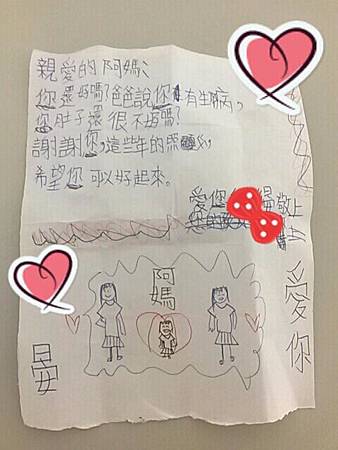 親愛的阿媽、
您還好嗎?爸爸說您有生病,
您肚子還很不好嗎?
謝謝您,這些年的照
希望您可以好起來。
愛您 敬上
阿媽
愛你